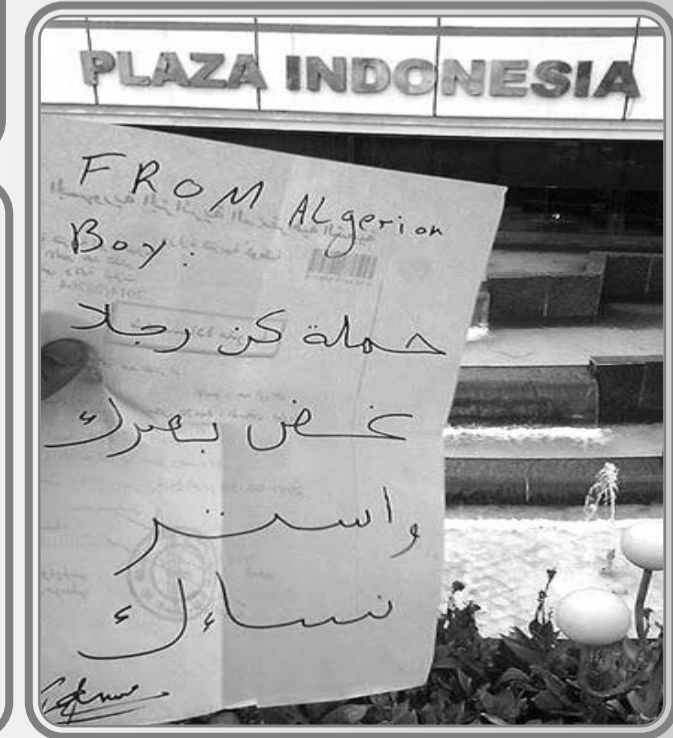 PLAZA INDONESIA
FROM ALgerian
Boy:
حملة كن رجلا
غض بصرك
واستر
نساءك